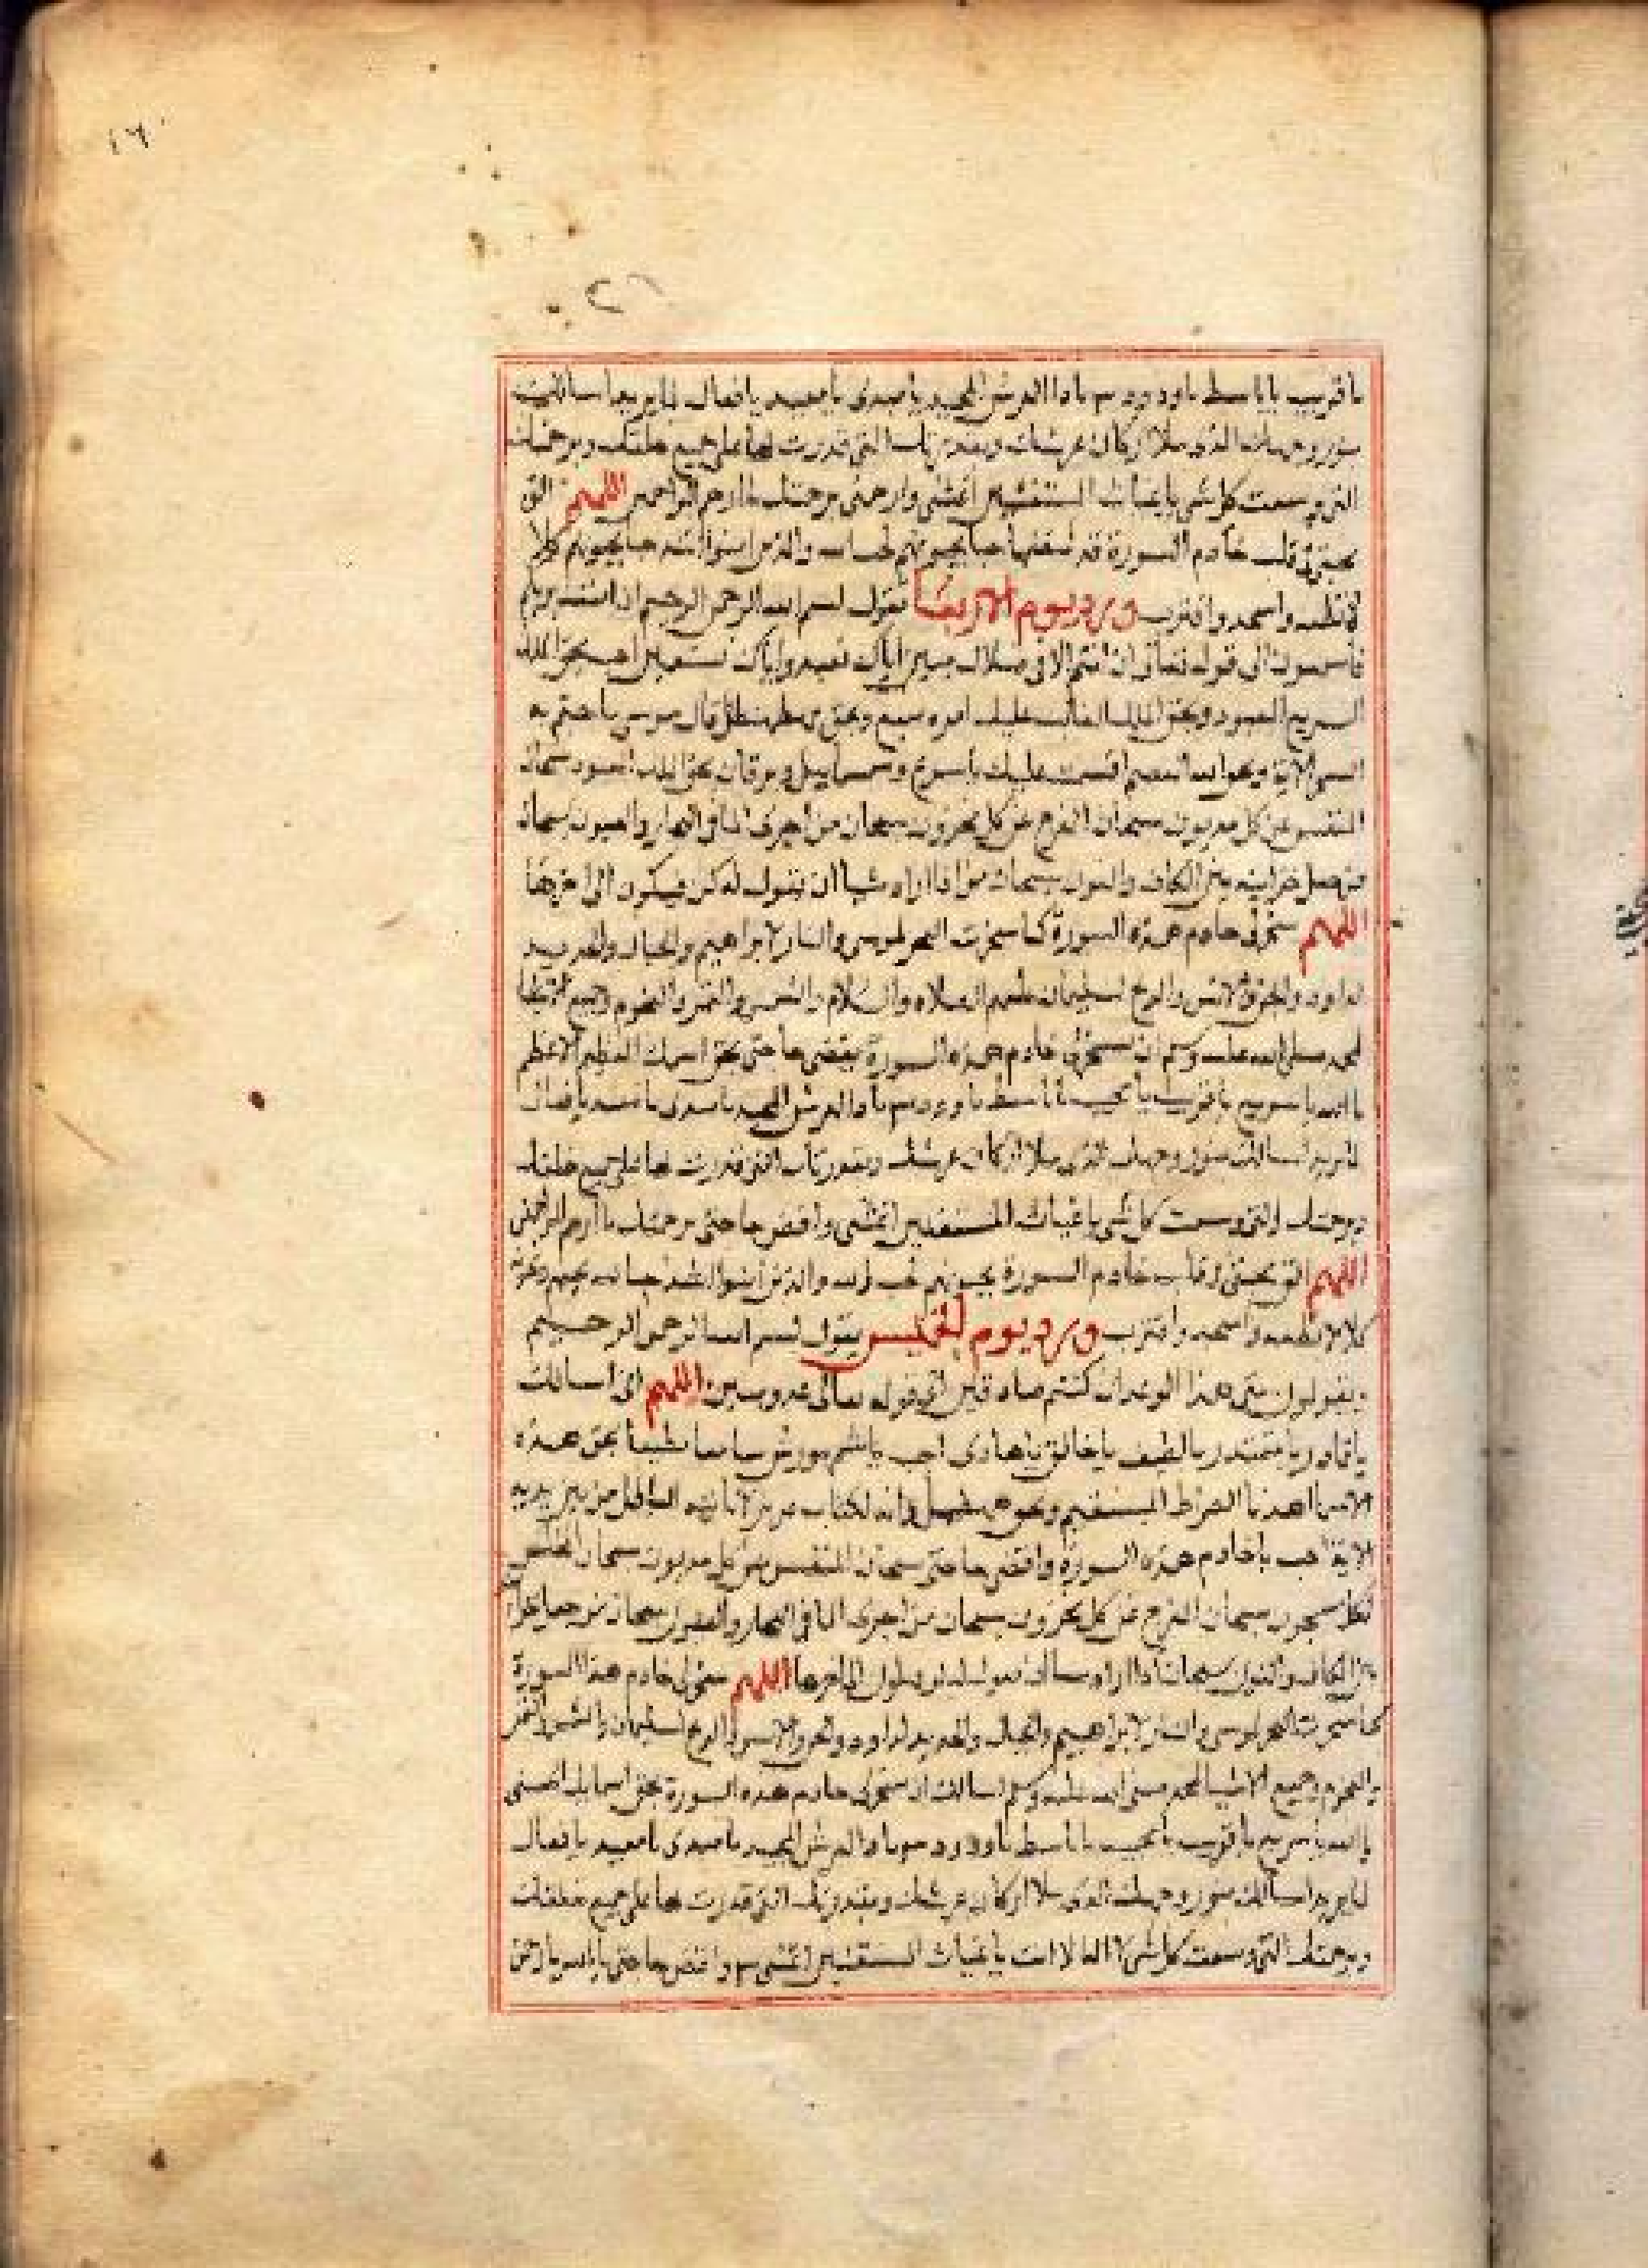 يا قريب يا باسط يا ودود يا ذا العرش المجيد يا مبدى يا معيد يا فعال لما يريد اسالك
بنور وجهك الذى ملا اركان عرشك وبقدرتك التى قدرت بها على جميع خلقك وبرحمتك
التى وسعت كل شى يا غياث المستغيثين اغثنى وارحمنى برحمتك يا ارحم الراحمين اللهم الق
محبتى فى قلب خادم السورة قد شغفها حبا يحبونهم كحب الله والذين امنوا اشد حبا كلا
لا تطعه واسجد واقترب ورد يوم الاربعا تقول بسم الله الرحمن الرحيم انى امنت بربكم
فاسمعون الى قوله تعالى ان انتم الا فى ضلال مبين اياك نعبد واياك نستعين اجب بحق الملك
السريع المعبود وبحق الملك الغالب عليك امره سميع وبحق قال موسى ما جئتم به
السحر الاية اقسمت عليك يا سبحان
المنفس عن كل مديون سبحان المفرج عن كل محزون سبحان من اجرى الما فى البحار والعيون سبحان
من جعل خزاينه بين الكاف والنون سبحان من اذا اراد شيا ان يقول له كن فيكون الى اخرها
اللهم سخر لى خادم هذه السورة كما سخرت البحر لموسى والنار لابراهيم والجبال والحديد
لداود والجن والانس والريح لسليمان عليهم الصلاه والسلام والشمس والقمر والنجوم وجميع
لمحمد صلى الله عليه وسلم ان تسخر لى خادم هذه السورة يقضى حاجتى بحق اسمك العظيم الاعظم
يا الله يا سريع يا قريب يا مجيب يا باسط يا ودود يا ذا العرش المجيد يا مبدى يا معيد يا فعال
لما يريد اسالك بنور وجهك الذى ملا اركان عرشك وبقدرتك التى قدرت بها على جميع خلقك
وبرحمتك التى وسعت كل شى يا غياث المستغيثين اغثنى واقض حاجتى برحمتك يا ارحم الراحمين
اللهم الق محبتى فى قلب خادم السورة يحبونهم كحب الله والذين امنوا اشد حبا لله
كلا لا تطعه واسجد واقترب ورد يوم الخميس يقول بسم الله الرحمن الرحيم
ويقولون متى هذا الوعد ان كنتم صادقين الى قوله تعالى عدو مبين اللهم انى اسالك
يا قادر يا مقتدر يا لطيف يا خالق يا هادى اجب يا شمهورش سامعا مطيعا بحق هذه
الاسما اهدنا الصراط المستقيم وبحق وانه لكتاب عزيز لا ياتيه الباطل من بين يديه
الاية اجب يا خادم هذه السورة واقض حاجتى سبحان المنفس عن كل مديون سبحان المخلص
لكل مسجون سبحان المفرج عن كل محزون سبحان من اجرى الما فى البحار والعيون سبحان من جعل خزاينه
بين الكاف والنون سبحان اذا اراد شيا ان يقول له كن فيكون الى اخرها اللهم سخر لى خادم هذه السورة
كما سخرت البحر لموسى والنار لابراهيم والجبال والحديد لداود والجن والانس والريح لسليمان والشمس والقمر
والنجوم وجميع الاشيا لمحمد صلى الله عليه وسلم اسالك ان تسخر لى خادم هذه السورة بحق اسمايك الحسنى
يا الله يا سريع يا قريب يا مجيب يا باسط يا ودود يا ذا العرش المجيد يا مبدى يا معيد يا فعال
لما يريد اسالك بنور وجهك الذى ملا اركان عرشك وبقدرتك التى قدرت بها على جميع خلقك
وبرحمتك التى وسعت كل شى لا اله الا انت يا غياث المستغيثين اغثنى واقض حاجتى